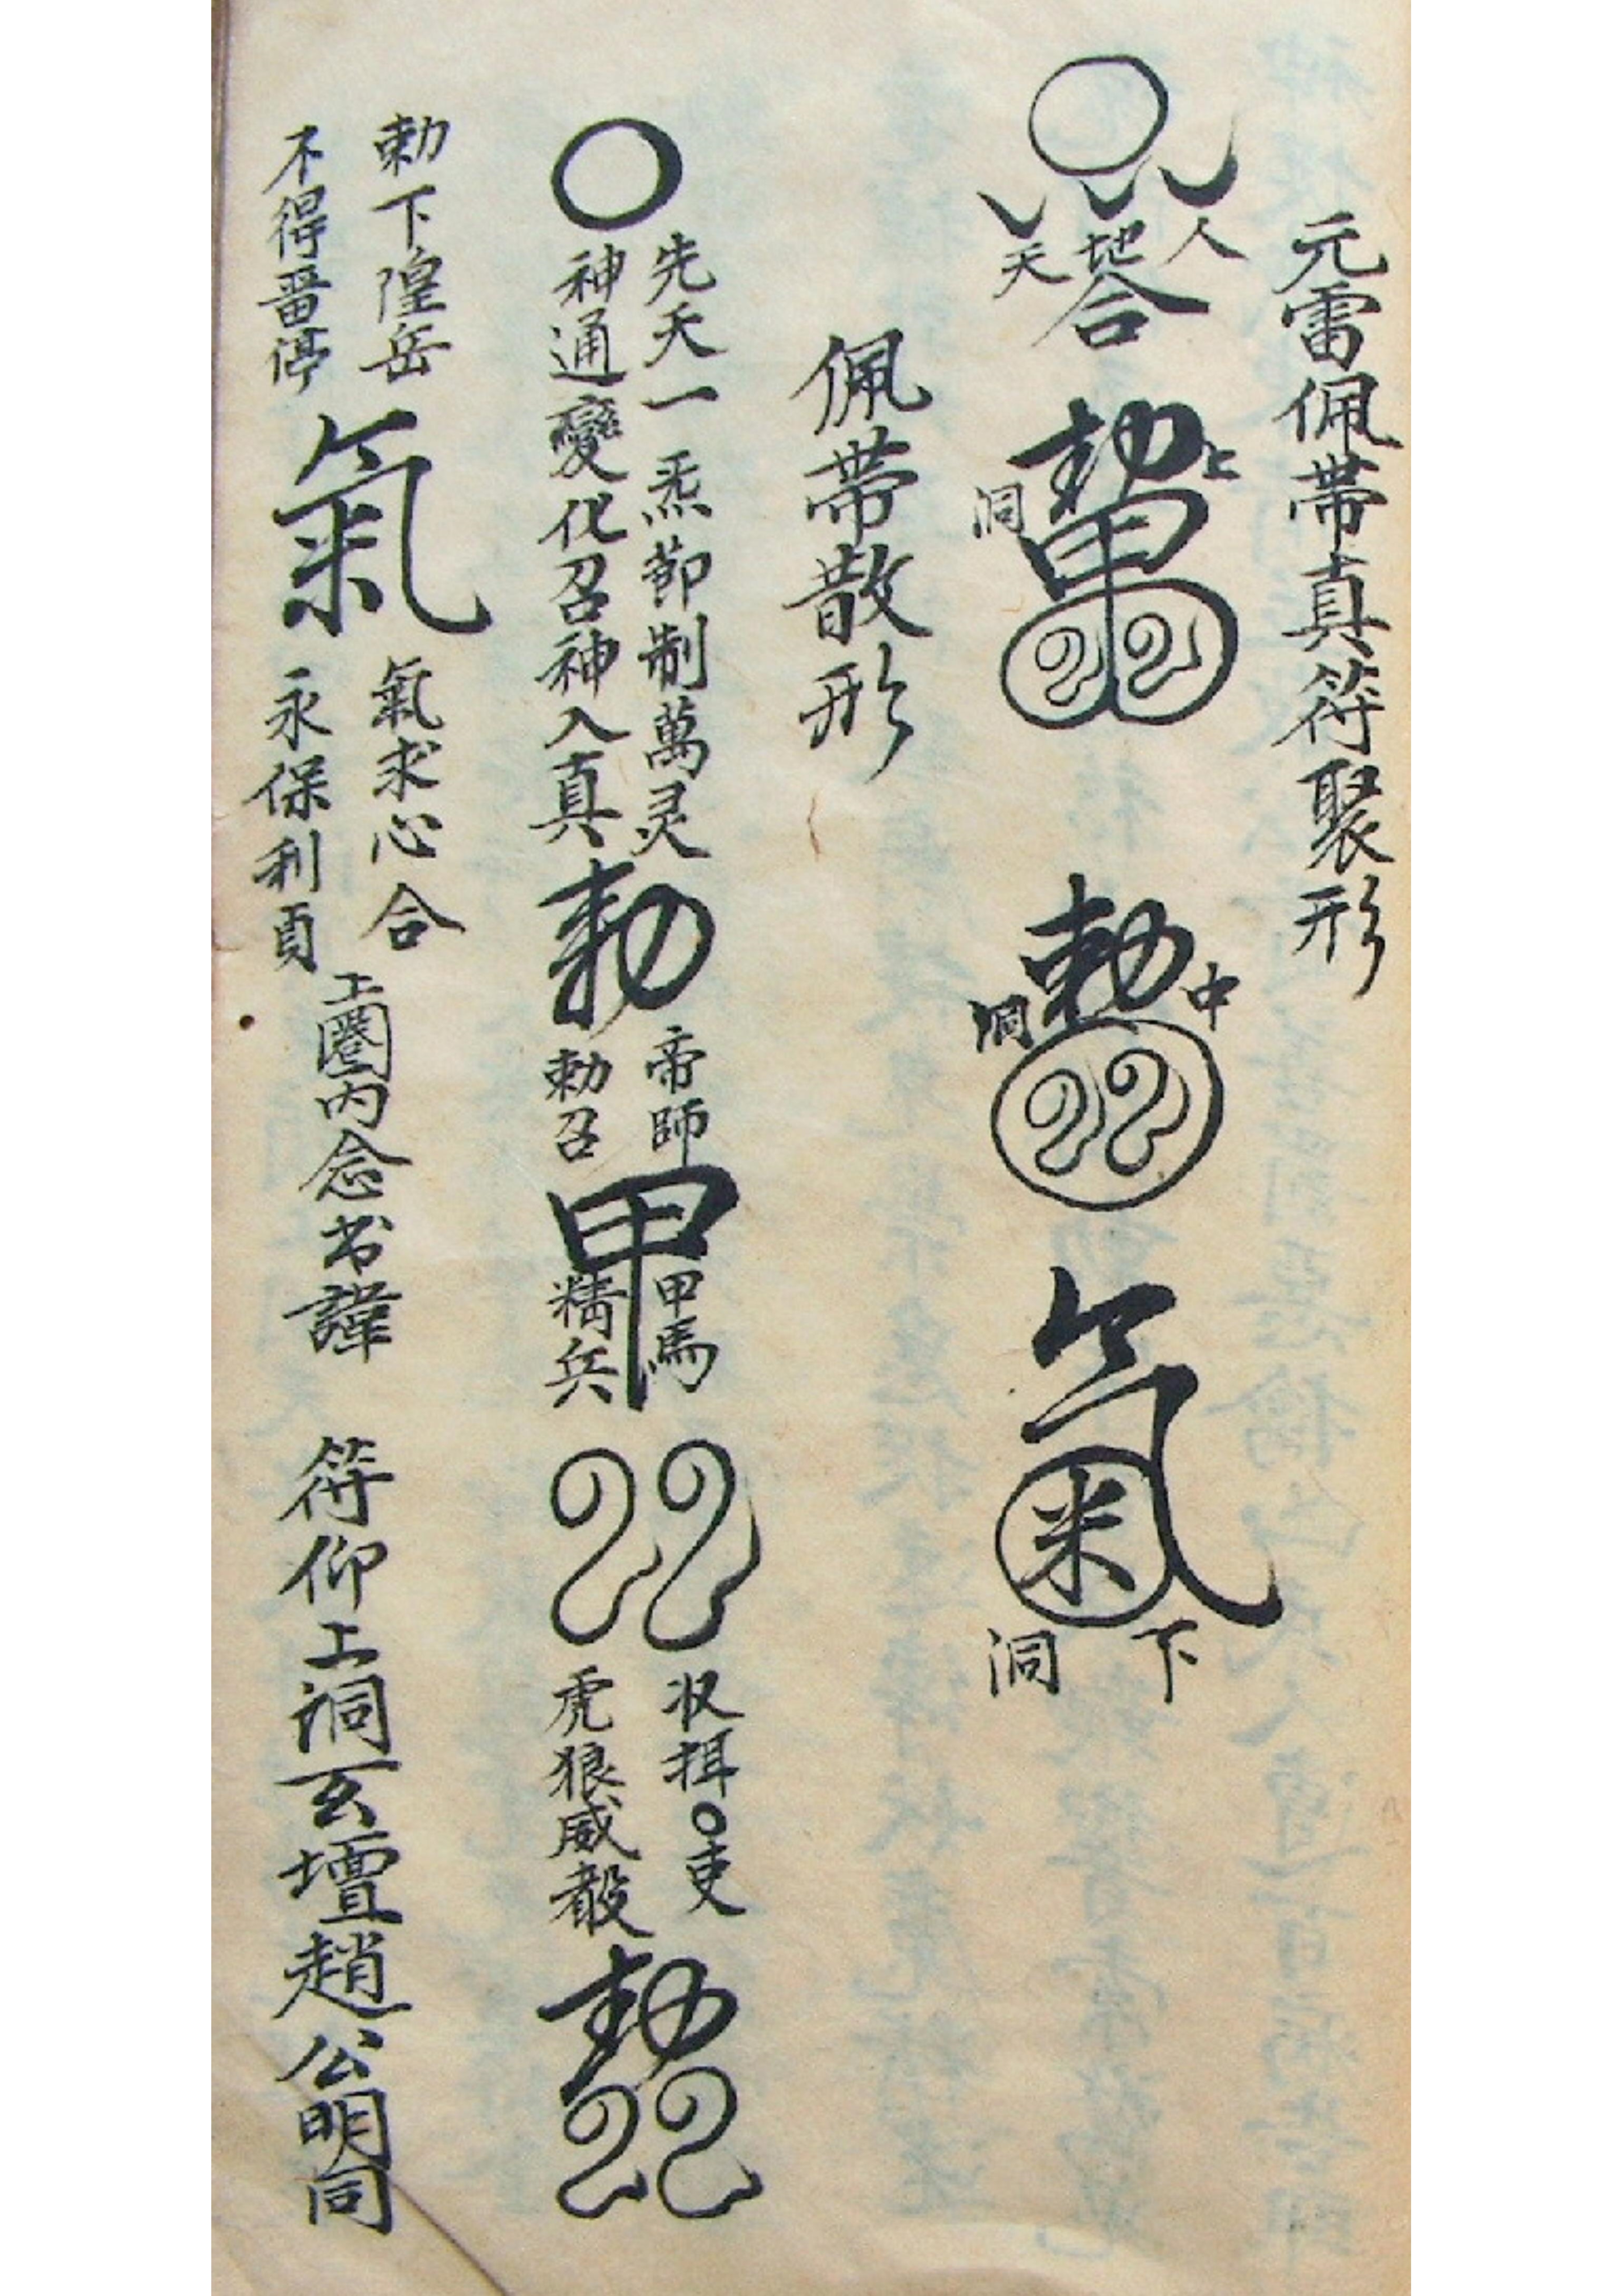 元雷佩帶真符聚形
人
地
天
合
勅
上
洞
甲
勅
中
洞
氣
下
洞
佩帶散形
先天一炁節制萬灵
神通變化召神入真
勅
帝師
勅召
甲
甲馬
精兵
収
吏
虎狼威
勅
勅下隍岳
不得畱停
氣
氣求心合
永保利貞
上圈內念书諱
符仰上洞玄壇趙公明同